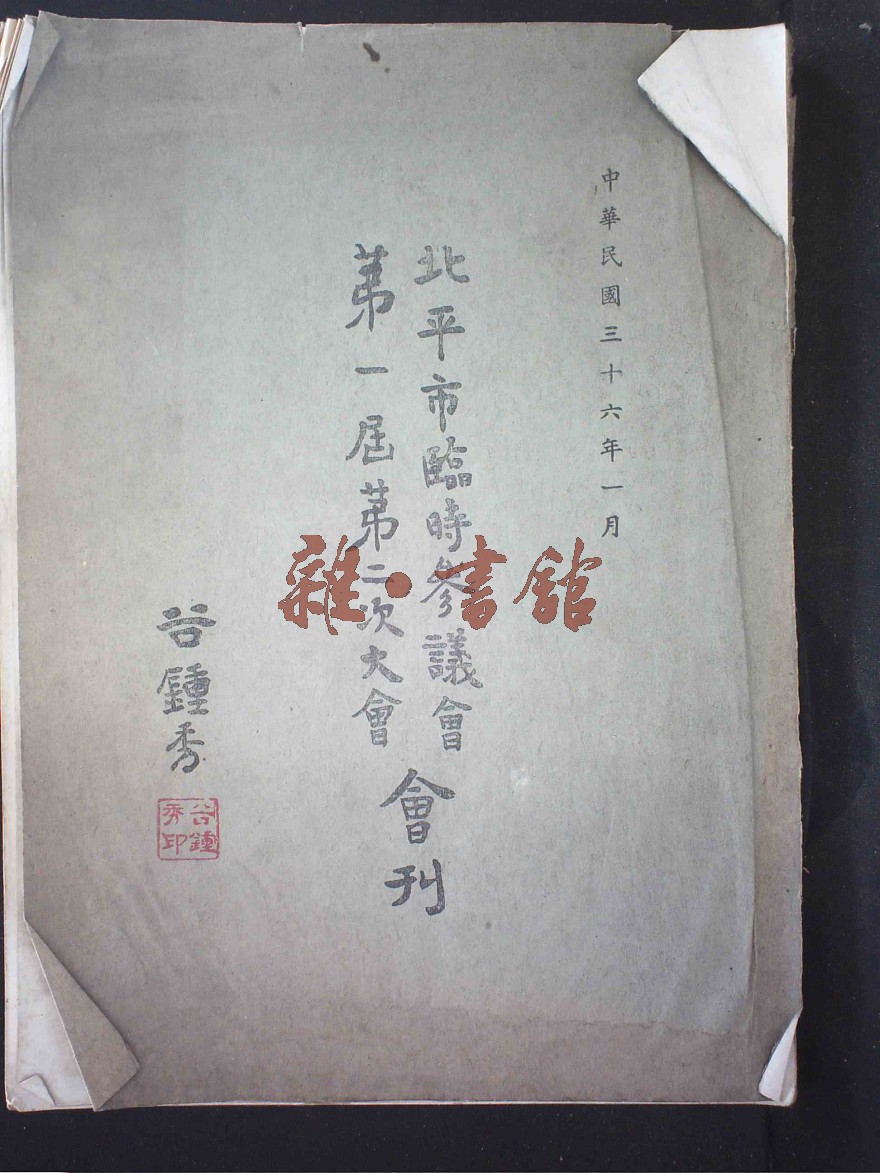 中華民國三十六年一月
北平市臨時參議會
第一屆第二次大會
會刊
谷鍾秀
谷鍾秀印
雜·書館